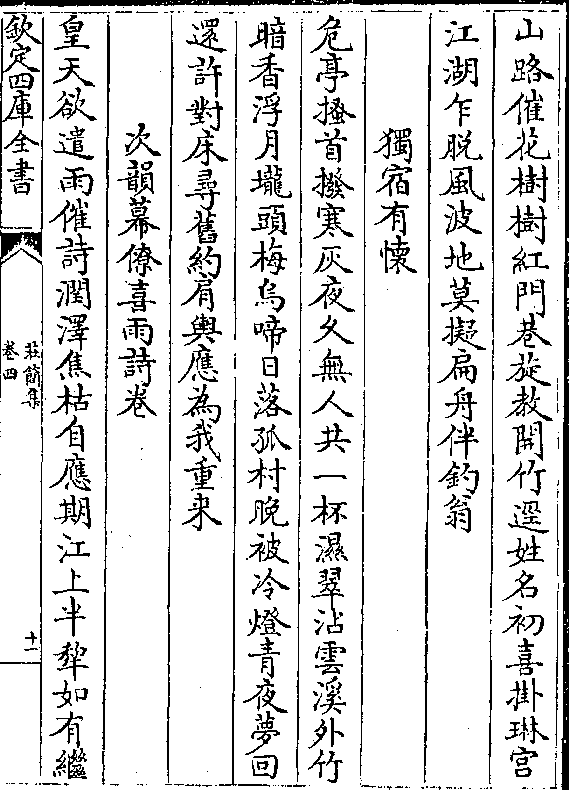 山路催花樹樹紅門巷旋教開竹逕姓名初喜掛琳宫
江湖乍脱風波地莫擬扁舟伴釣翁
獨宿有懷
危亭搔首撥寒灰夜久無人共一杯濕翠沾雲溪外竹
暗香浮月壠頭梅烏啼日落孤村晚被冷燈青夜夢回
還許對床尋舊約肩輿應為我重来
次韻幕僚喜雨詩卷
皇天欲遣雨催詩潤澤焦枯自應期江上半犂如有繼
欽定四庫全書
莊簡集
卷四
十一